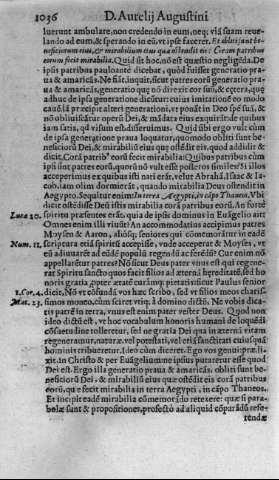 1036 D. Aurelij Augustini
luerunt ambulare, non credendo in eum, neq; viā suam reuelando ad eum, & sperando in eū, vt ipse faceret. Et obliti sunt
beneficiorum eius, & mirabiliū eius quæ ostendit eis: Coram patribus
eorum fecit mirabilia. Quid sit hoc, nō est quæstio negligēda. De
ipsis patribus paulo ante dicebat, quòd fuisset generatio praua & amaricās. Ne fiāt, inquit, sicut patres eorū generatio praua & amaricās, generatio quę nō direxit cor suū, & cętera, quę
adhuc de ipsa generatione dicūtur
nō obliuiscātur operū Dei, & mādata eius exquirāt
iam satis, qd' visum est, disseruimus. Quid sibi ergo vult cùm
de ipsa generatione praua loquatur, quomodo obliti sunt beneficiorū Dei, & mirabiliū eius quę ostēdit eis, quod addidit &
dicit, Corā patrib° eorū fecit mirabilia: Quibus patribus
acceperimus ex quibus isti nati erāt, velut Abrahā, Isaac & Iacob, iam olim dormierāt, quando mirabilia Deus ostendit in
Ægypto. Sequitur enim: In terra Ægypti, in cāpo Thaneos. Vbi
dicit ostēdisse Deū istis mirabilia corā patribus eorū. An fortè
Luca 20. spiritu præsentes erāt, quia de ipsis dominus in Euāgelio ait:
Omnes enim illi viuūt: An accommodatius accipimus patres
Moysen & Aaron, aliosq; seniores qui commemorātur in eadē
Num. 11. scriptura etiā spiritū accepisse, vnde acceperat & Moyses, vt
eū adiuuarēt ad eūdē populū regendū ac ferēdū? Cur enim nō
appellarētur patres? Nō sicut Deus pater vnus est qui regenerat Spiritu sancto quos facit filios ad æternā hæreditatē, sed honoris gratia
1. Cor. 4.
Mat. 23. simos moneo, cùm sciret vtiq; à domino dictū: Ne vobis dicatis patrē in terra, vnus est enim pater vester Deus. Quod non
ideo dictū est, vt hoc vocabulum honoris humani de loquēdi
cōsuetudine tolleretur, sed ne gratia Dei qua in æternā vitam
regeneramur, naturæ, vel potestati, vel etiā sanctitati cuiusquā
hominis tribueretur. Ideo cùm diceret: Ego vos genui: præmisit, In Christo & per Euāgelium: ne ipsius putaretur esse quod
Dei est. Ergo illa generatio praua & amaricās, obliti sunt beneficiorū Dei, & mirabiliū eius quæ ostēdit eis corā patribus
eorū, quę fecit mirabilia in terra Aegypti, in cāpo Thaneos.
Et incipit eadē mirabilia cōmemorādo retexere: quæ si parabolæ sunt & propositiones, profectò ad aliquid cōparādū referendæ